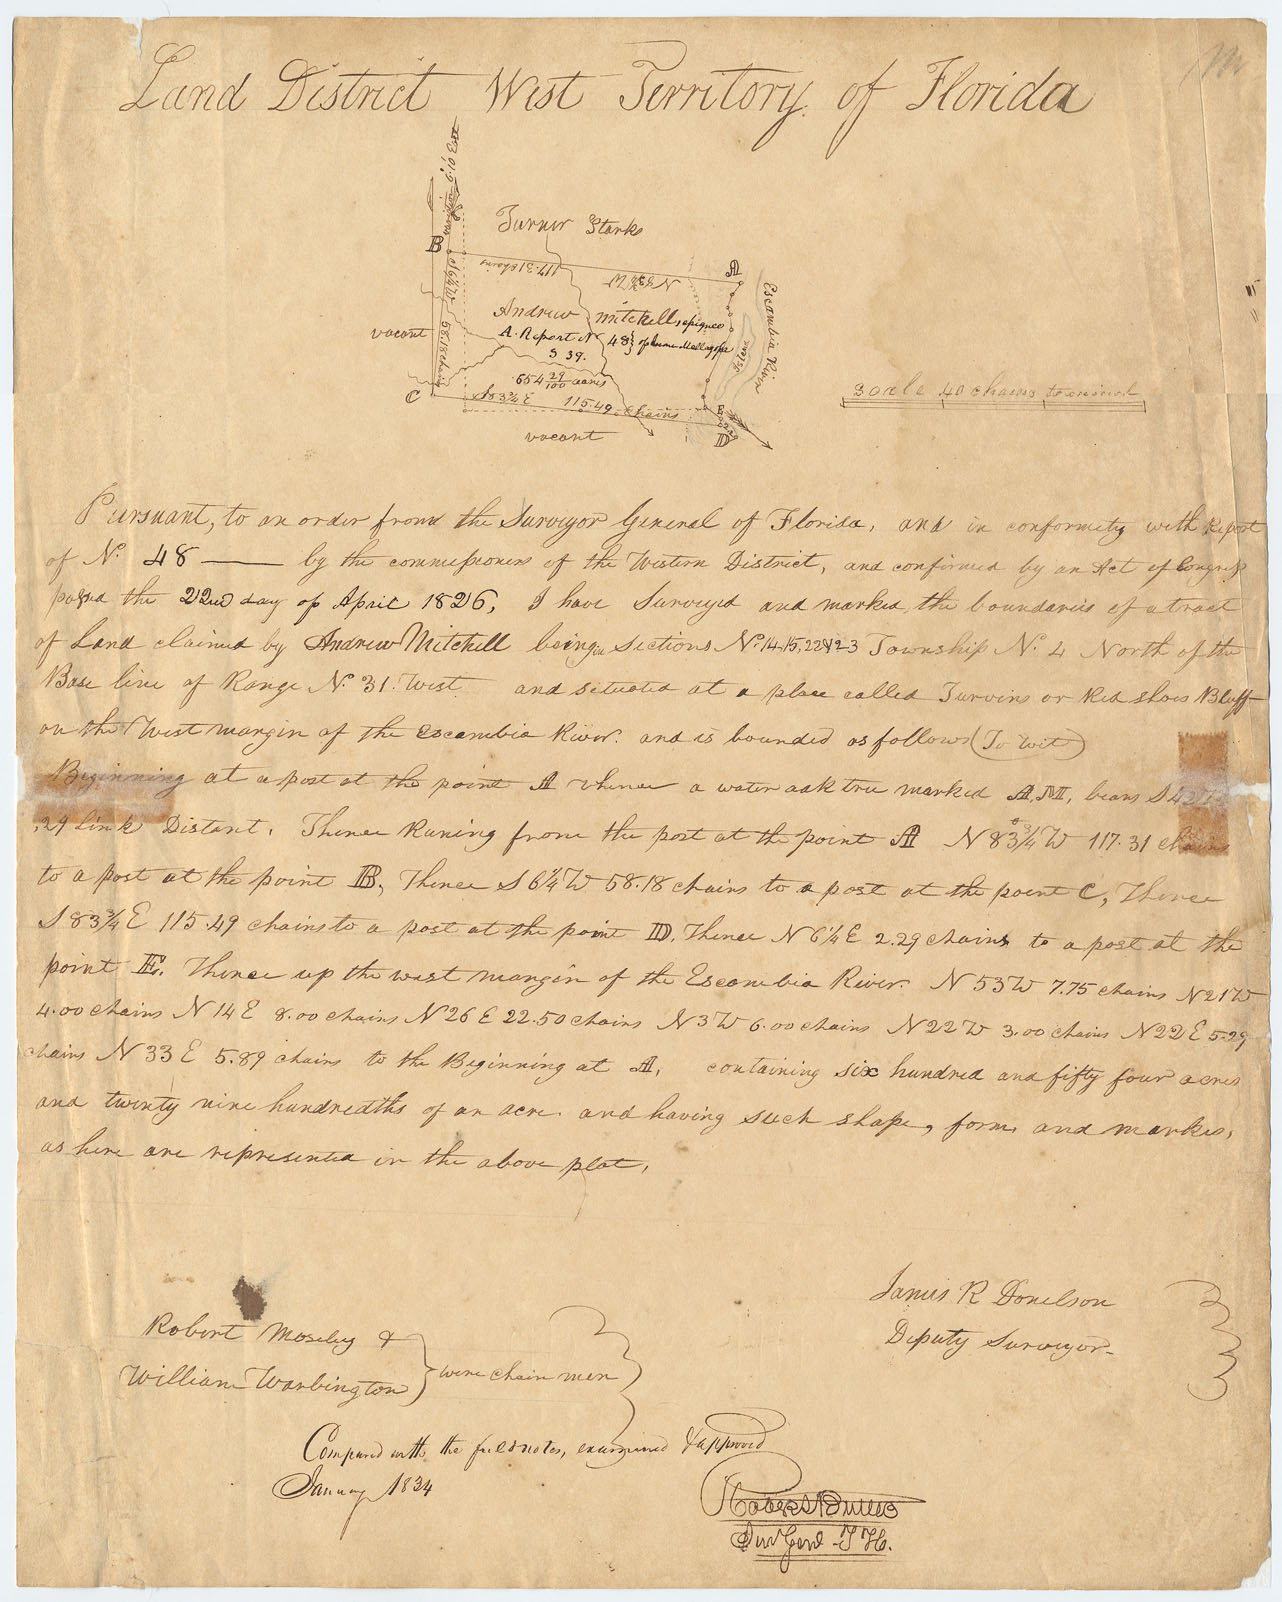 Land District West Territory of Florida
variation 6.10 East
Turner Starks
B
A
117.31 chains
N 83¾ W
S 6¼ W
58.18 chains
Andrew Mitchell,
A. Report No 48
S 39.
654 29/100 acres
vacant
Island
Escambia River
C
S 83¾ E 115.49 chains
E
D
vacant
Scale 40 chains to an inch
Pursuant, to an order from the Surveyor General of Florida, and in conformity with Report
of No. 48 —— by the commissioners of the Western District, and confirmed by an Act of Congress
passed the 22nd day of April 1826, I have Surveyed and marked the boundaries of a tract
of Land claimed by Andrew Mitchell being in Sections No. 14, 15, 22 & 23 Township No. 4 North of the
Base line of Range No. 31. West and situated at a place called Turvins or Red shoes Bluff
on the West margin of the Escambia River. and is bounded as follows (To wit)
Beginning at a post at the point A whence a water oak tree marked A,M, bears S
.29 Link Distant. Thence Runing from the post at the point A N 83¾ W 117.31 chains
to a post at the point B, Thence S 6¼ W 58.18 chains to a post at the point C, Thence
S 83¾ E 115.49 chains to a post at the point D. Thence N 6¼ E 2.29 chains to a post at the
point E. Thence up the west margin of the Escambia River. N 53 W 7.75 chains N 21 W
4.00 chains N 14 E 8.00 chains N 26 E 22.50 chains N 3 W 6.00 chains N 22 W 3.00 chains N 22 E 5.29
chains N 33 E 5.89 chains to the Beginning at A, containing six hundred and fifty four acres
and twenty nine hundredths of an acre. and having such shape, form, and marks,
as here are represented in the above plat.
James R Donelson
Deputy Surveyor
Robert Moseley &
William Warbington
were chain men
Compared with the field notes, examined & approved
January 1834
Robert Butler
Sur Genl T. F.